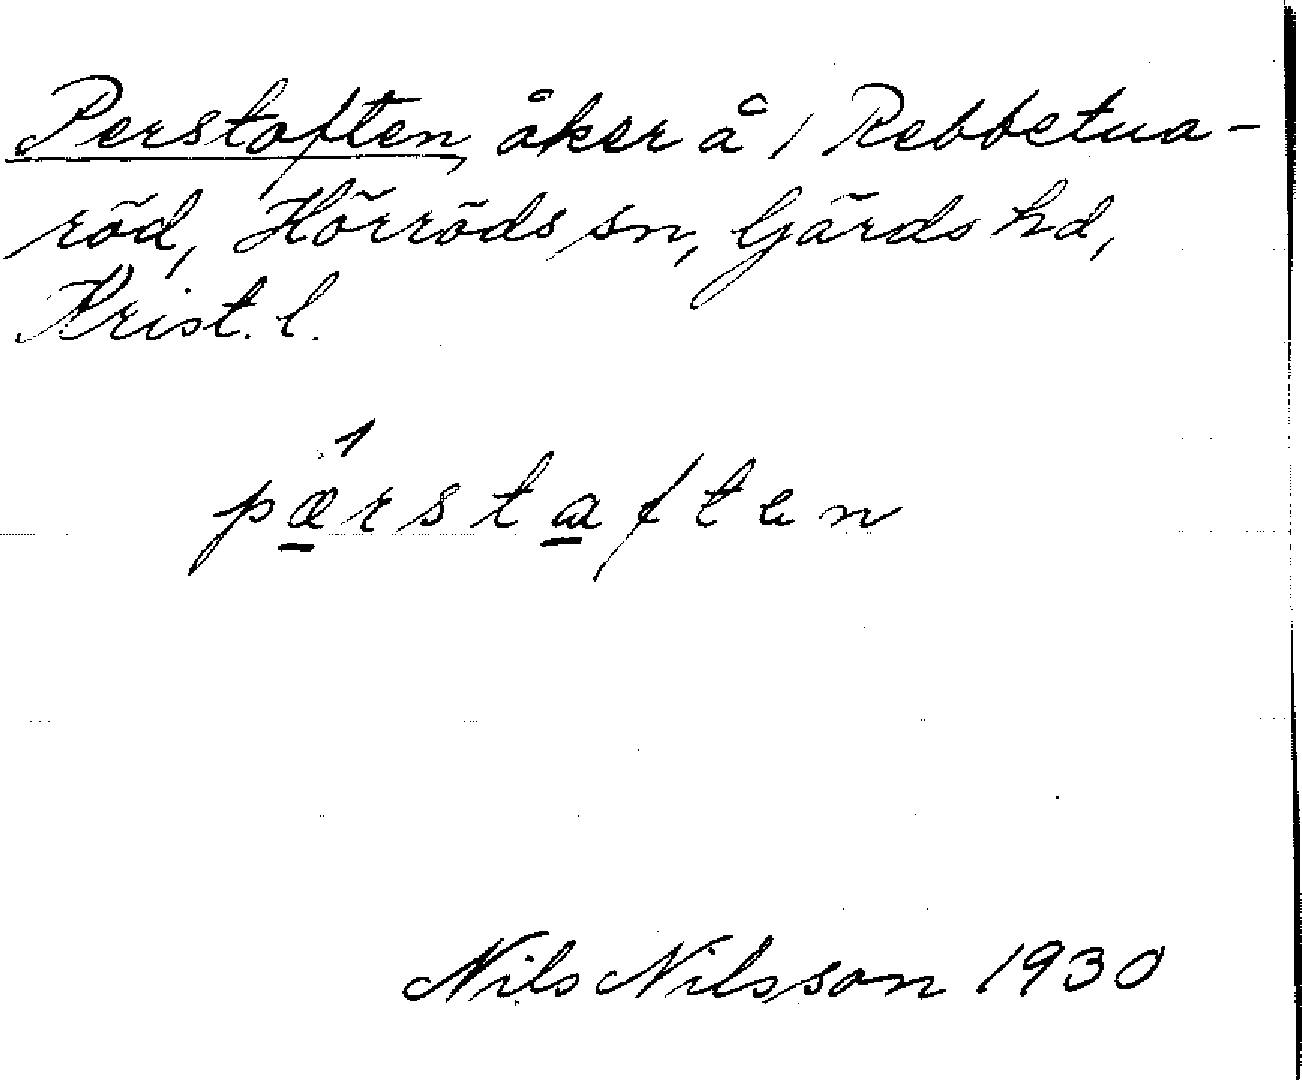 Perstoften, åker å 1 Rebbetua-
röd, Hörröds sn, Gärds hd,
Krist. l.
1
pærstaften
Nils Nilsson 1930